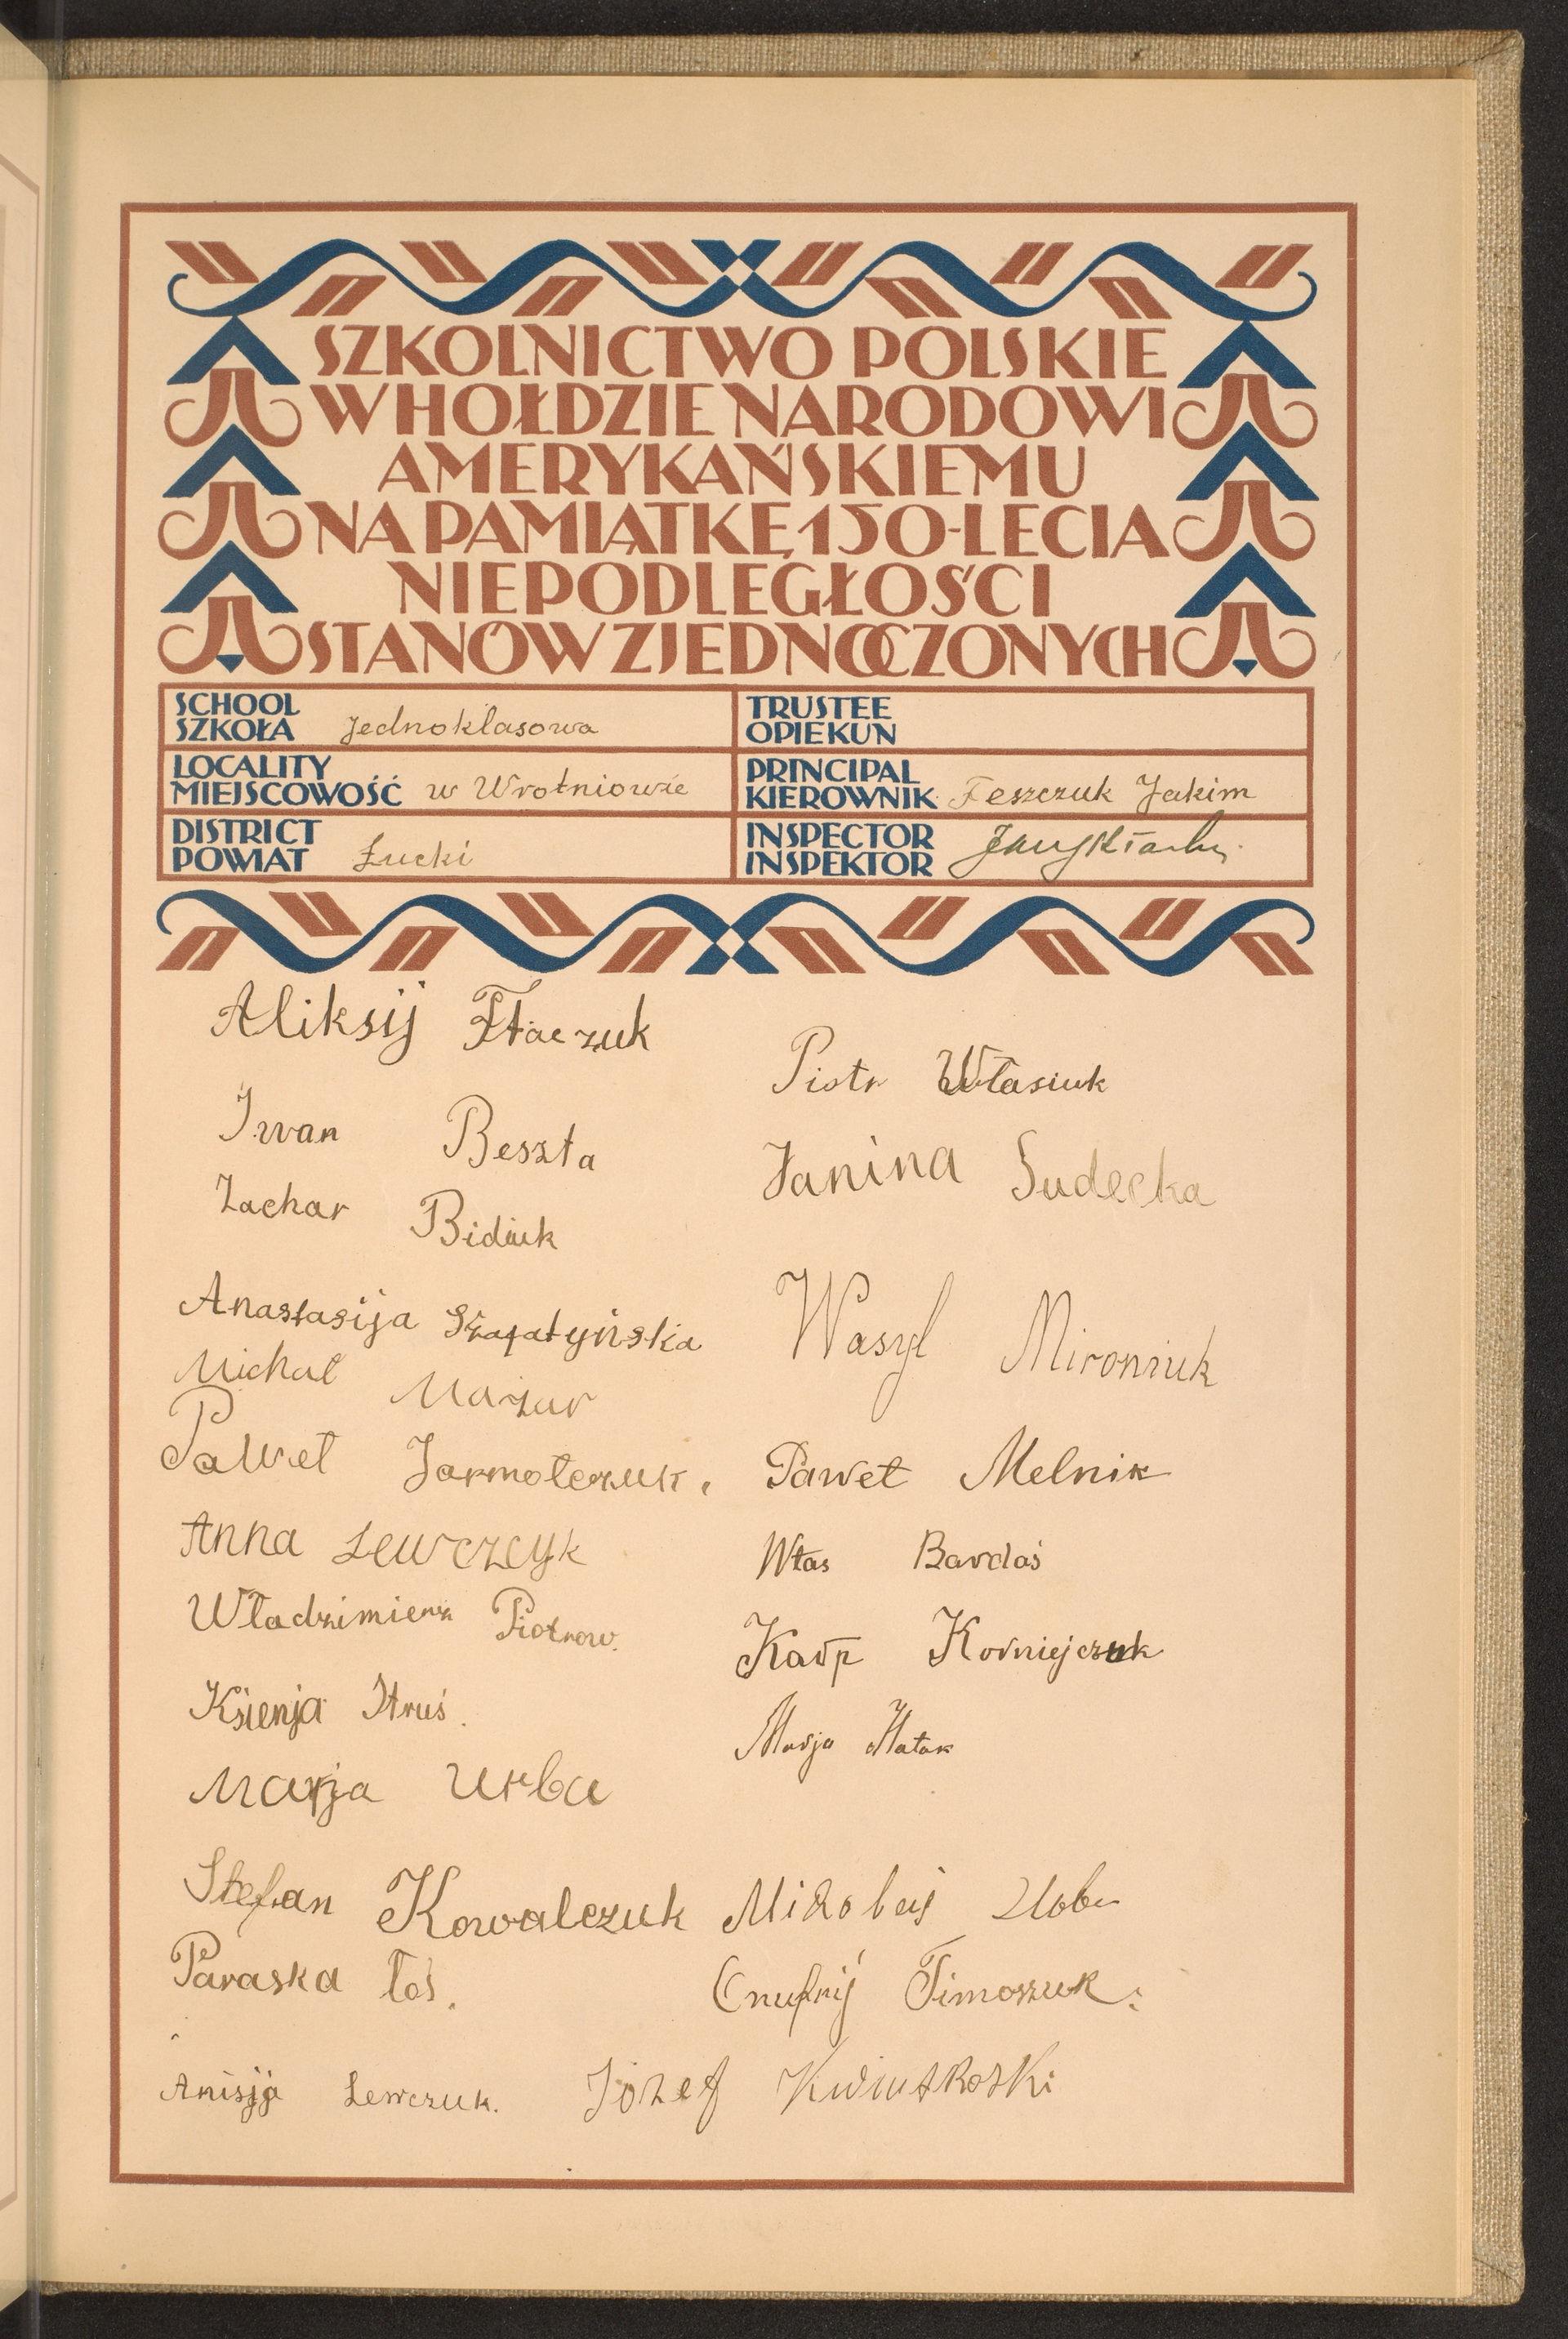 SZKOLNICTWO POLSKIE
W HOŁDZIE NARODOWI
AMERYKAŃSKIEMU
NA PAMIĄTKĘ 150-LECIA
NIEPODLEGŁOŚCI
STANÓW ZJEDNOCZONYCH
SCHOOL
SZKOŁA Jednoklasowa
TRUSTEE
OPIEKUN
LOCALITY
MIEJSCOWOŚĆ w Wrotniowie
PRINCIPAL
KIEROWNIK Feszczuk Jakim
DISTRICT
POWIAT Łucki
INSPECTOR
INSPEKTOR
Aliksij
Piotr Własiuk
Iwan Beszta
Janina Sudecka
Zachar Bidiuk
Anastasija
Wasyl Mironiuk
Michał Mazur
Paweł Jarmołczuk.
Paweł Melnik
Anna Lewczcyk
Włas Bardaś
Władzimierz Piotrow.
Karp Korniejczuk
Ksienja Struś.
Marja
Marja Urba
Stefan Kowalczuk
Paraska Łoś.
Onufrij Timoszuk.
Anisija Lewczuk.
Józef